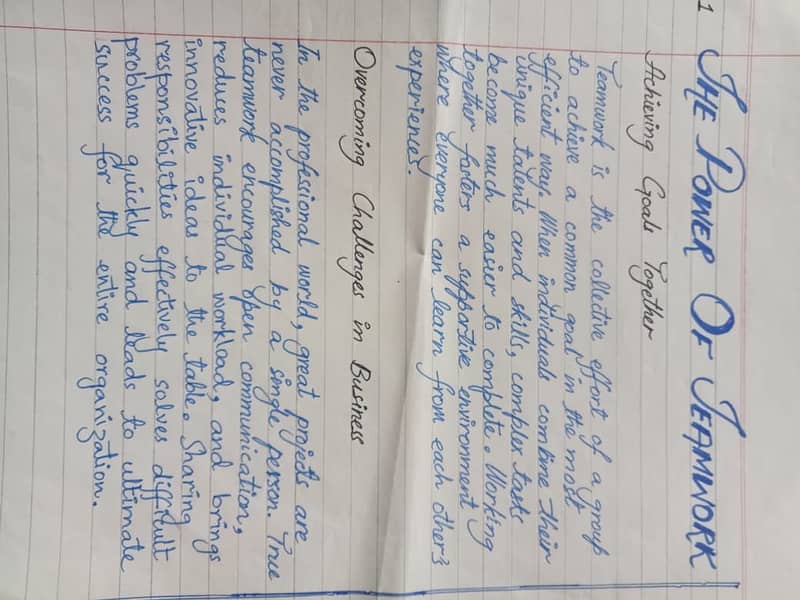 1
THE POWER OF TEAMWORK
Achieving Goals Together
Teamwork is the collective effort of a group
to achieve a common goal in the most
efficient way. When individuals combine their
unique talents and skills, complex tasks
become much easier to complete. Working
together fosters a supportive environment
where everyone can learn from each other's
experiences.
Overcoming Challenges in Business
In the profesional world, great projects are
never accomplished by a single person. True
teamwork encourages open communication,
reduces individual workload, and brings
innovative ideas to the table. Sharing
responsibilities effectively solves difficult
problems quickly and leads to ultimate
success for the entire organization.